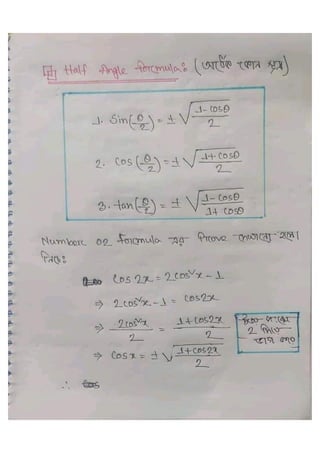 Half Angle formula: (অর্ধেক কোন সূত্র)
1. Sin(θ/2) = ± √(1-cosθ/2)
2. cos(θ/2) = ± √(1+cosθ/2)
3. tan(θ/2) = ± √(1-cosθ/1+cosθ)
Number 02 formula এর Prove দেখানো হলো
নিচে:
Cos2x = 2cos²x - 1
⇒ 2cos²x - 1 = cos2x
⇒ 2cos²x/2 = 1+cos2x/2
⇒ cosx = ± √(1+cos2x/2)
2 দিয়ে
ভাগ
∴ cos